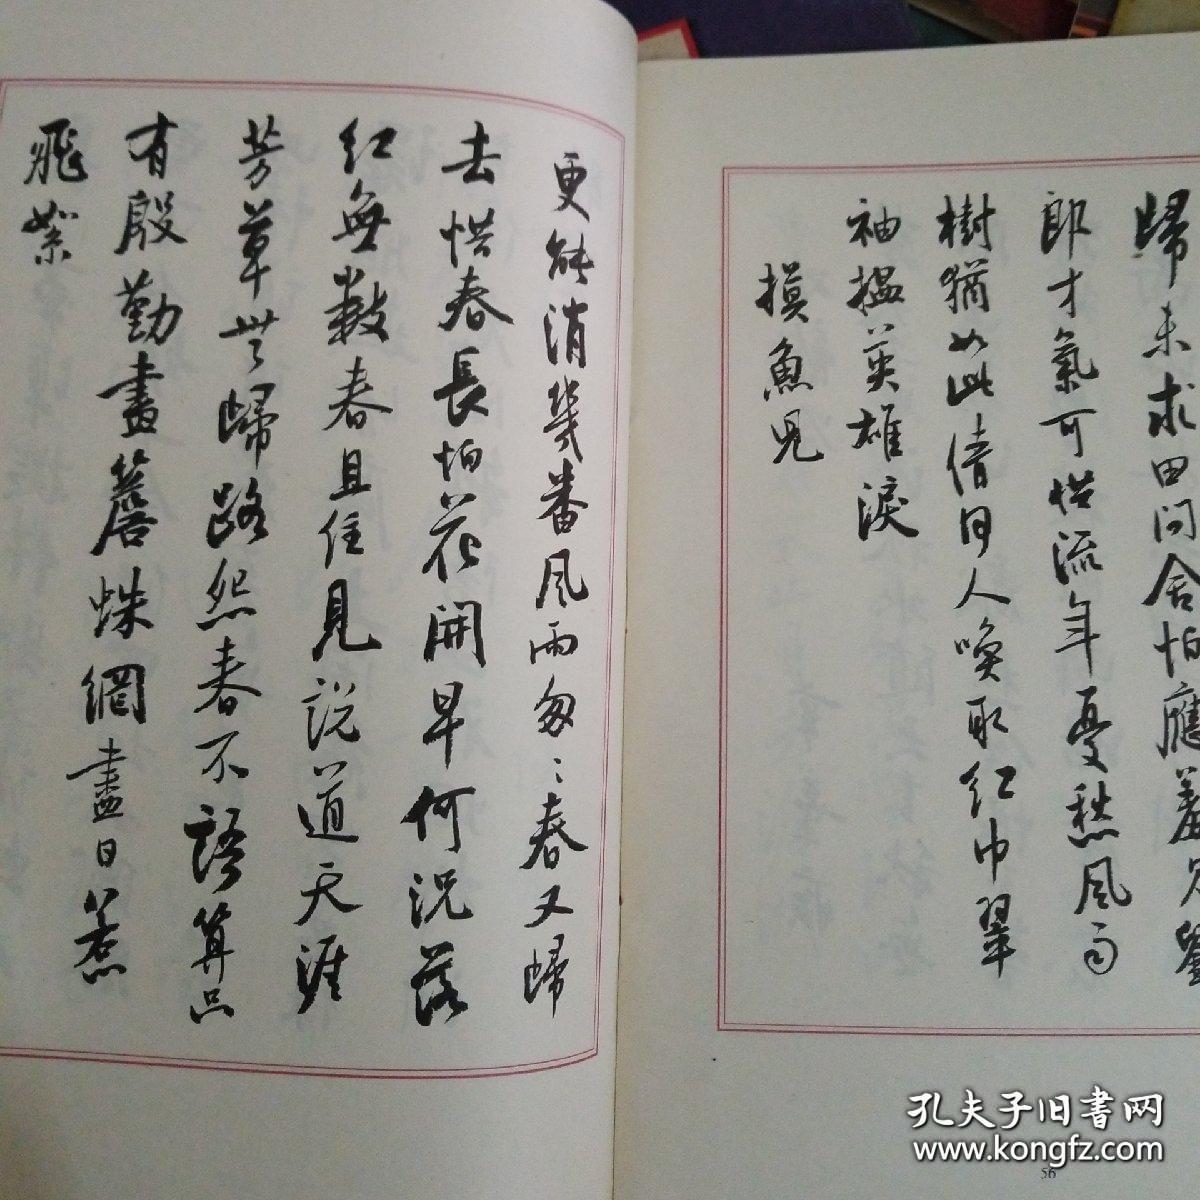 歸未求田問舍怕應羞見劉
郎才氣可惜流年憂愁風雨
樹猶如此倩何人喚取紅巾翠
袖搵英雄淚
摸魚兒
更能消幾番風雨匆匆春又歸
去惜春長怕花開早何況落
紅無數春且住見說道天涯
芳草無歸路怨春不語算只
有殷勤畫簷蛛網盡日惹
飛絮
56
孔夫子旧书网
www.kongfz.com